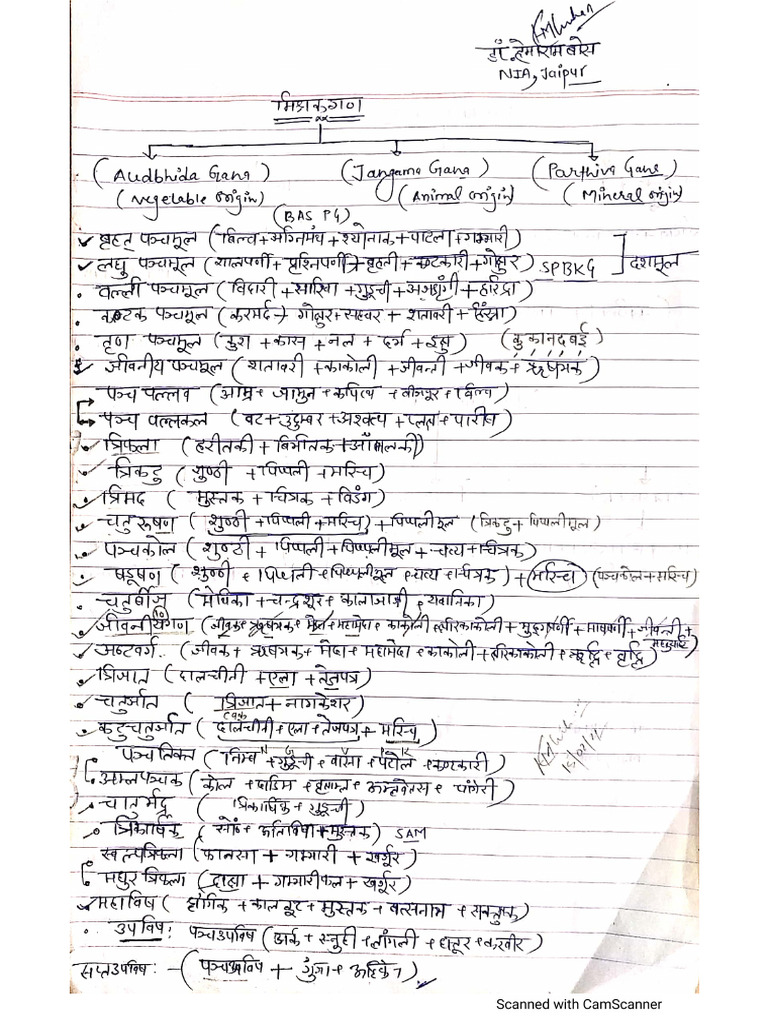 डॉ. हेमाराम बोस
NIA, Jaipur
मिश्रकगण
(Audbhida Gana) (Jangama Gana) (Parthiva Gana)
(Vegetable Origin) (Animal Origin) (Mineral Origin)
(BAS PG)
बृहत् पञ्चमूल (बिल्व+अग्निमंथ+श्योनाक+पाटला+गम्भारी)
लघु पञ्चमूल (शालपर्णी + पृश्निपर्णी+बृहती+कण्टकारी+गोक्षुर) SPBKG दशमूल
वल्ली पञ्चमूल (विदारी+सारिवा+गुडूची+अजशृंगी+हरिद्रा)
कण्टक पञ्चमूल (करमर्द+गोक्षुर+सहचर+शतावरी+हिंस्रा)
तृण पञ्चमूल (कुश+कास+नल+दर्भ+इक्षु) (कुकानदबई)
जीवनीय पञ्चमूल (शतावरी+काकोली+जीवन्ती+जीवक+ऋषभक)
पञ्च पल्लव (आम्र+जामुन+कपित्थ+बीजपूर+बिल्व)
पञ्च वल्कल (वट+उदुम्बर+अश्वत्थ+प्लक्ष+पारीष)
त्रिफला (हरीतकी+बिभीतक+आँमलकी)
त्रिकटु (शुण्ठी+पिप्पली+मरिच)
त्रिमद (मुस्तक+चित्रक+विडंग)
चतुरूषण (शुण्ठी+पिप्पली+मरिच)+पिप्पलीमूल (त्रिकटु+पिप्पलीमूल)
पञ्चकोल (शुण्ठी+पिप्पली+पिप्पलीमूल+चव्य+चित्रक)
षडूषण (शुण्ठी+पिप्पली+पिप्पलीमूल+चव्य+चित्रक)+मरिच (पञ्चकोल+मरिच)
चतुर्बीज (मेथिका+चन्द्रशूर+कालाजाजी+यवानिका)
जीवनीयगण (10) (जीवक+ऋषभक+मेदा+महामेदा+काकोली+क्षीरकाकोली+मुद्गपर्णी+माषपर्णी+जीवन्ती+
अष्टवर्ग. (जीवक+ऋषभक+मेदा+महामेदा+काकोली+क्षीरकाकोली+ऋद्धि+वृद्धि)
त्रिजात (दालचीनी+एला+तेजपत्र)
चतुर्जात (त्रिजात+नागकेशर)
कटुचतुर्जात (दालचीनी+एला+तेजपत्र+मरिच)
पञ्चतिक्त (निम्ब+गुडूची+वासा+पटोल+कण्टकारी)
अम्लपञ्चक (कोल+दाडिम+वृक्षाम्ल+अम्लवेतस+चांगेरी)
चातुर्भद्र (त्रिकार्षिक+गुडूची)
त्रिकार्षिक (सोंठ+अतिविषा+मुस्तक) SAM
स्वल्पत्रिफला (फालसा+गम्भारी+खर्जूर)
मधुर त्रिफला (द्राक्षा+गम्भारीफल+खर्जूर)
महाविष (शृंगिक+कालकूट+मुस्तक+वत्सनाभ+सक्तुक)
उपविष: पञ्चउपविष (अर्क+स्नुही+लांगली+धतूर+करवीर)
सप्तउपविष:-(पञ्चउपविष+गुंजा+अहिफेन)
15/02/12
Scanned with CamScanner